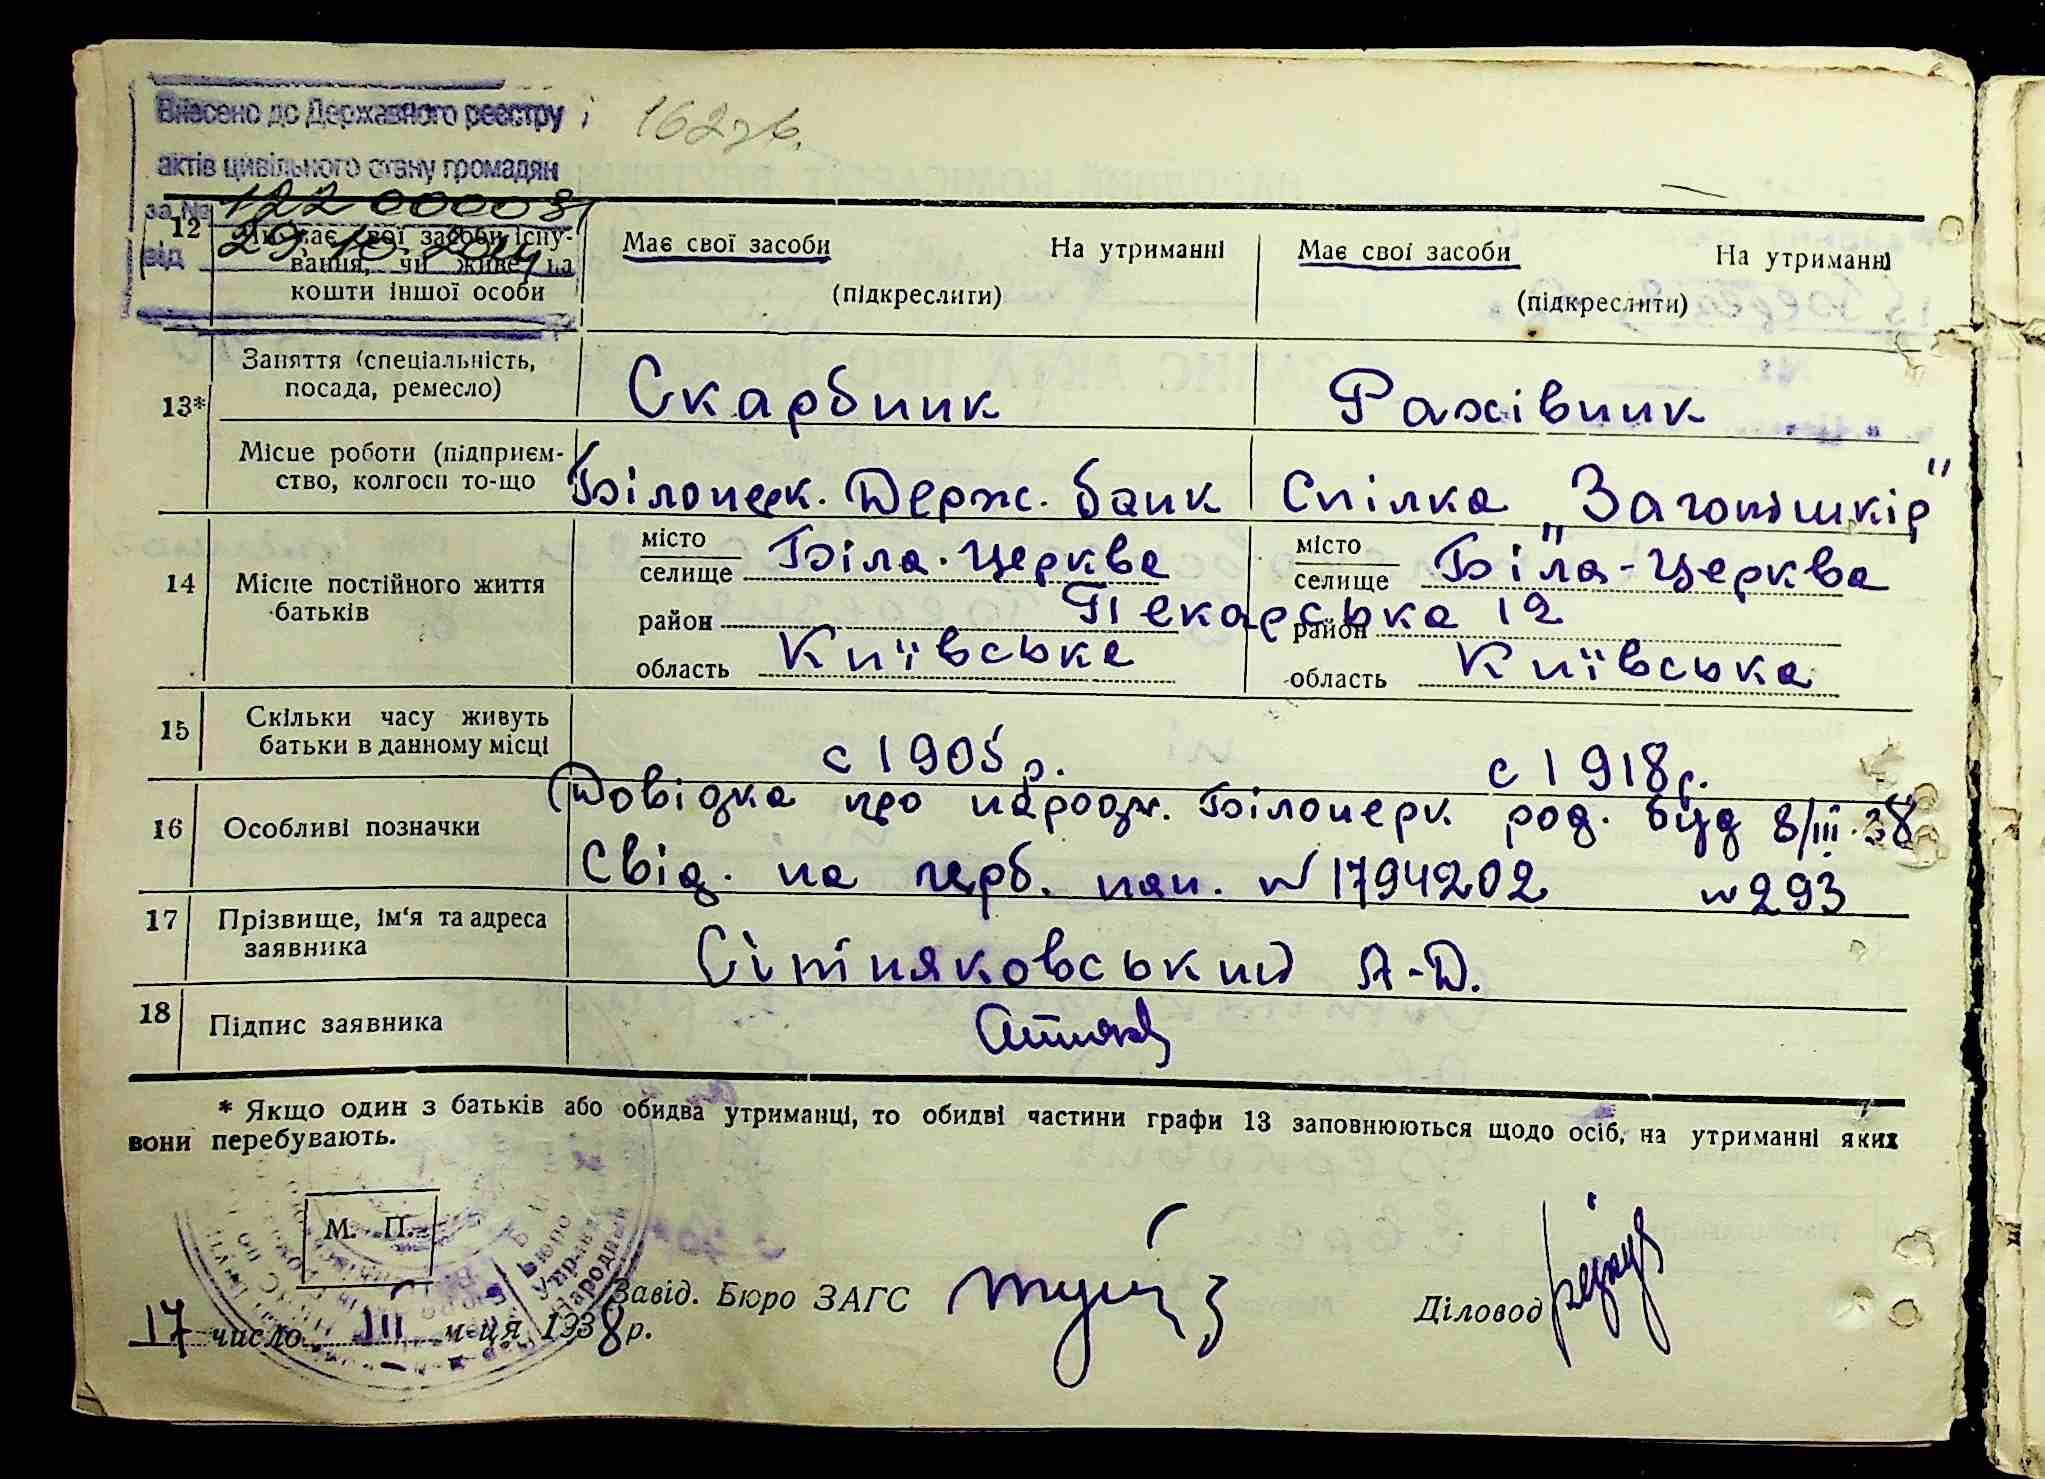 Внесено до Державного реєстру
актів цивільного стану громадян
за № 122 00008
від 29.10.
162зв.
12 Чи має свої засоби існування, чи живе на кошти іншої особи
Має свої засоби На утриманні
(підкреслити)
Має свої засоби На утриманні
(підкреслити)
13* Заняття (спеціальність, посада, ремесло)
Скарбник
Рахівник
Місце роботи (підприємство, колгосп то-що
Білоцерк. Держ. банк
Спілка „Заготшкір"
14 Місце постійного життя батьків
місто
селище Біла-Церква
район Пекарська 12
область Київська
місто
селище Біла-Церква
район
область Київська
15 Скільки часу живуть батьки в данному місці
с 1905 р.
с 1918 р.
16 Особливі позначки
Довідка про народж. Білоцерк род. буд 8/III.38
Свід. на герб. пап. № 1794202 № 293
17 Прізвище, ім'я та адреса заявника
Сітняковський А-Д.
18 Підпис заявника
* Якщо один з батьків або обидва утриманці, то обидві частини графи 13 заповнюються щодо осіб, на утриманні яких
вони перебувають.
М. П.
Завід. Бюро ЗАГС
Діловод
17 число III м-ця 1938 р.